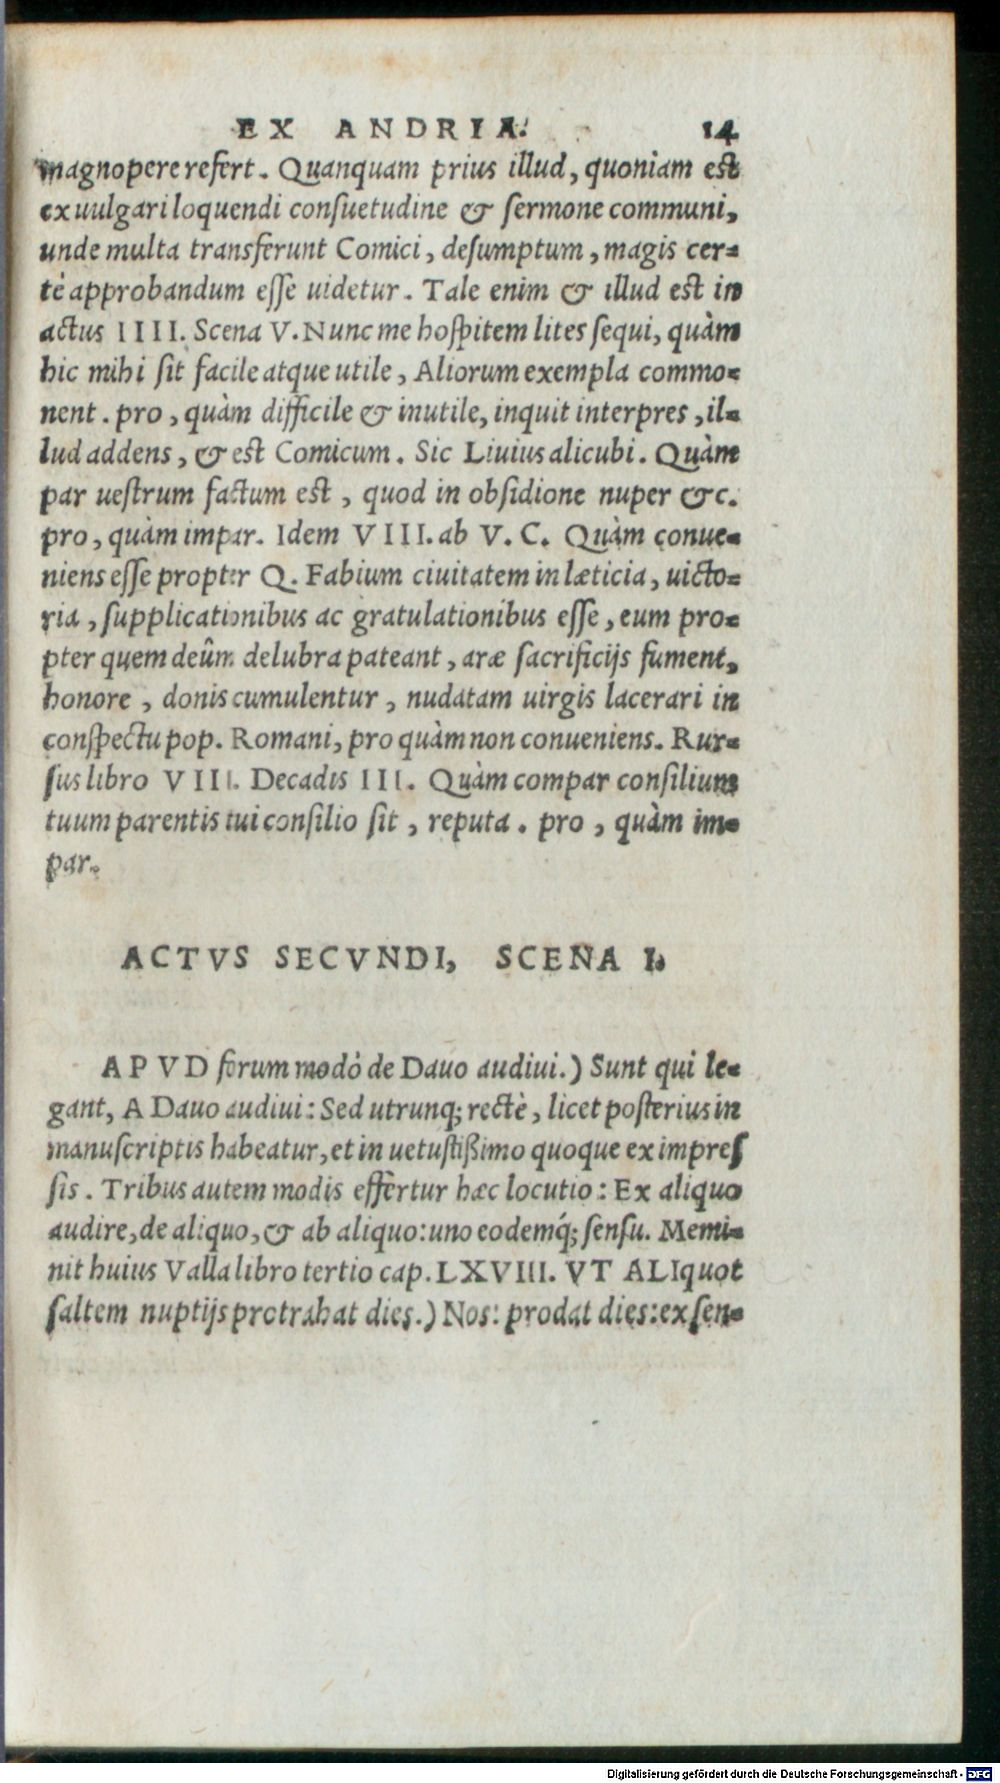 EX ANDRIA. 14
magnopere refert. Quanquam prius illud, quoniam est
ex uulgari loquendi consuetudine & sermone communi,
unde multa transferunt Comici, desumptum, magis cer-
tè approbandum esse uidetur. Tale enim & illud est in
actus IIII. Scena V. Nunc me hospitem lites sequi, quàm
hic mihi sit facile atque utile, Aliorum exempla commo-
nent. pro, quàm difficile & inutile, inquit interpres, il-
lud addens, & est Comicum. Sic Liuius alicubi. Quàm
par uestrum factum est, quod in obsidione nuper &c.
pro, quàm impar. Idem VIII. ab V. C. Quàm conue-
niens esse propter Q. Fabium ciuitatem in læticia, uicto-
ria, supplicationibus ac gratulationibus esse, eum pro-
pter quem deûm delubra pateant, aræ sacrificijs fument,
honore, donis cumulentur, nudatam uirgis lacerari in
conspectu pop. Romani, pro quàm non conueniens. Rur-
sus libro VIII. Decadis III. Quàm compar consilium
tuum parentis tui consilio sit, reputa. pro, quàm im-
par.
ACTVS SECVNDI, SCENA I.
APVD forum modò de Dauo audiui.) Sunt qui le-
gant, A Dauo audiui: Sed utrunq; rectè, licet posterius in
manuscriptis habeatur, et in uetustißimo quoque ex impres
sis. Tribus autem modis effertur hæc locutio: Ex aliquo
audire, de aliquo, & ab aliquo: uno eodemq́; sensu. Memi-
nit huius Valla libro tertio cap. LXVIII. VT ALIquot
saltem nuptijs protrahat dies.) Nos: prodat dies: ex sen-
Digitalisierung gefördert durch die Deutsche Forschungsgemeinschaft - DFG